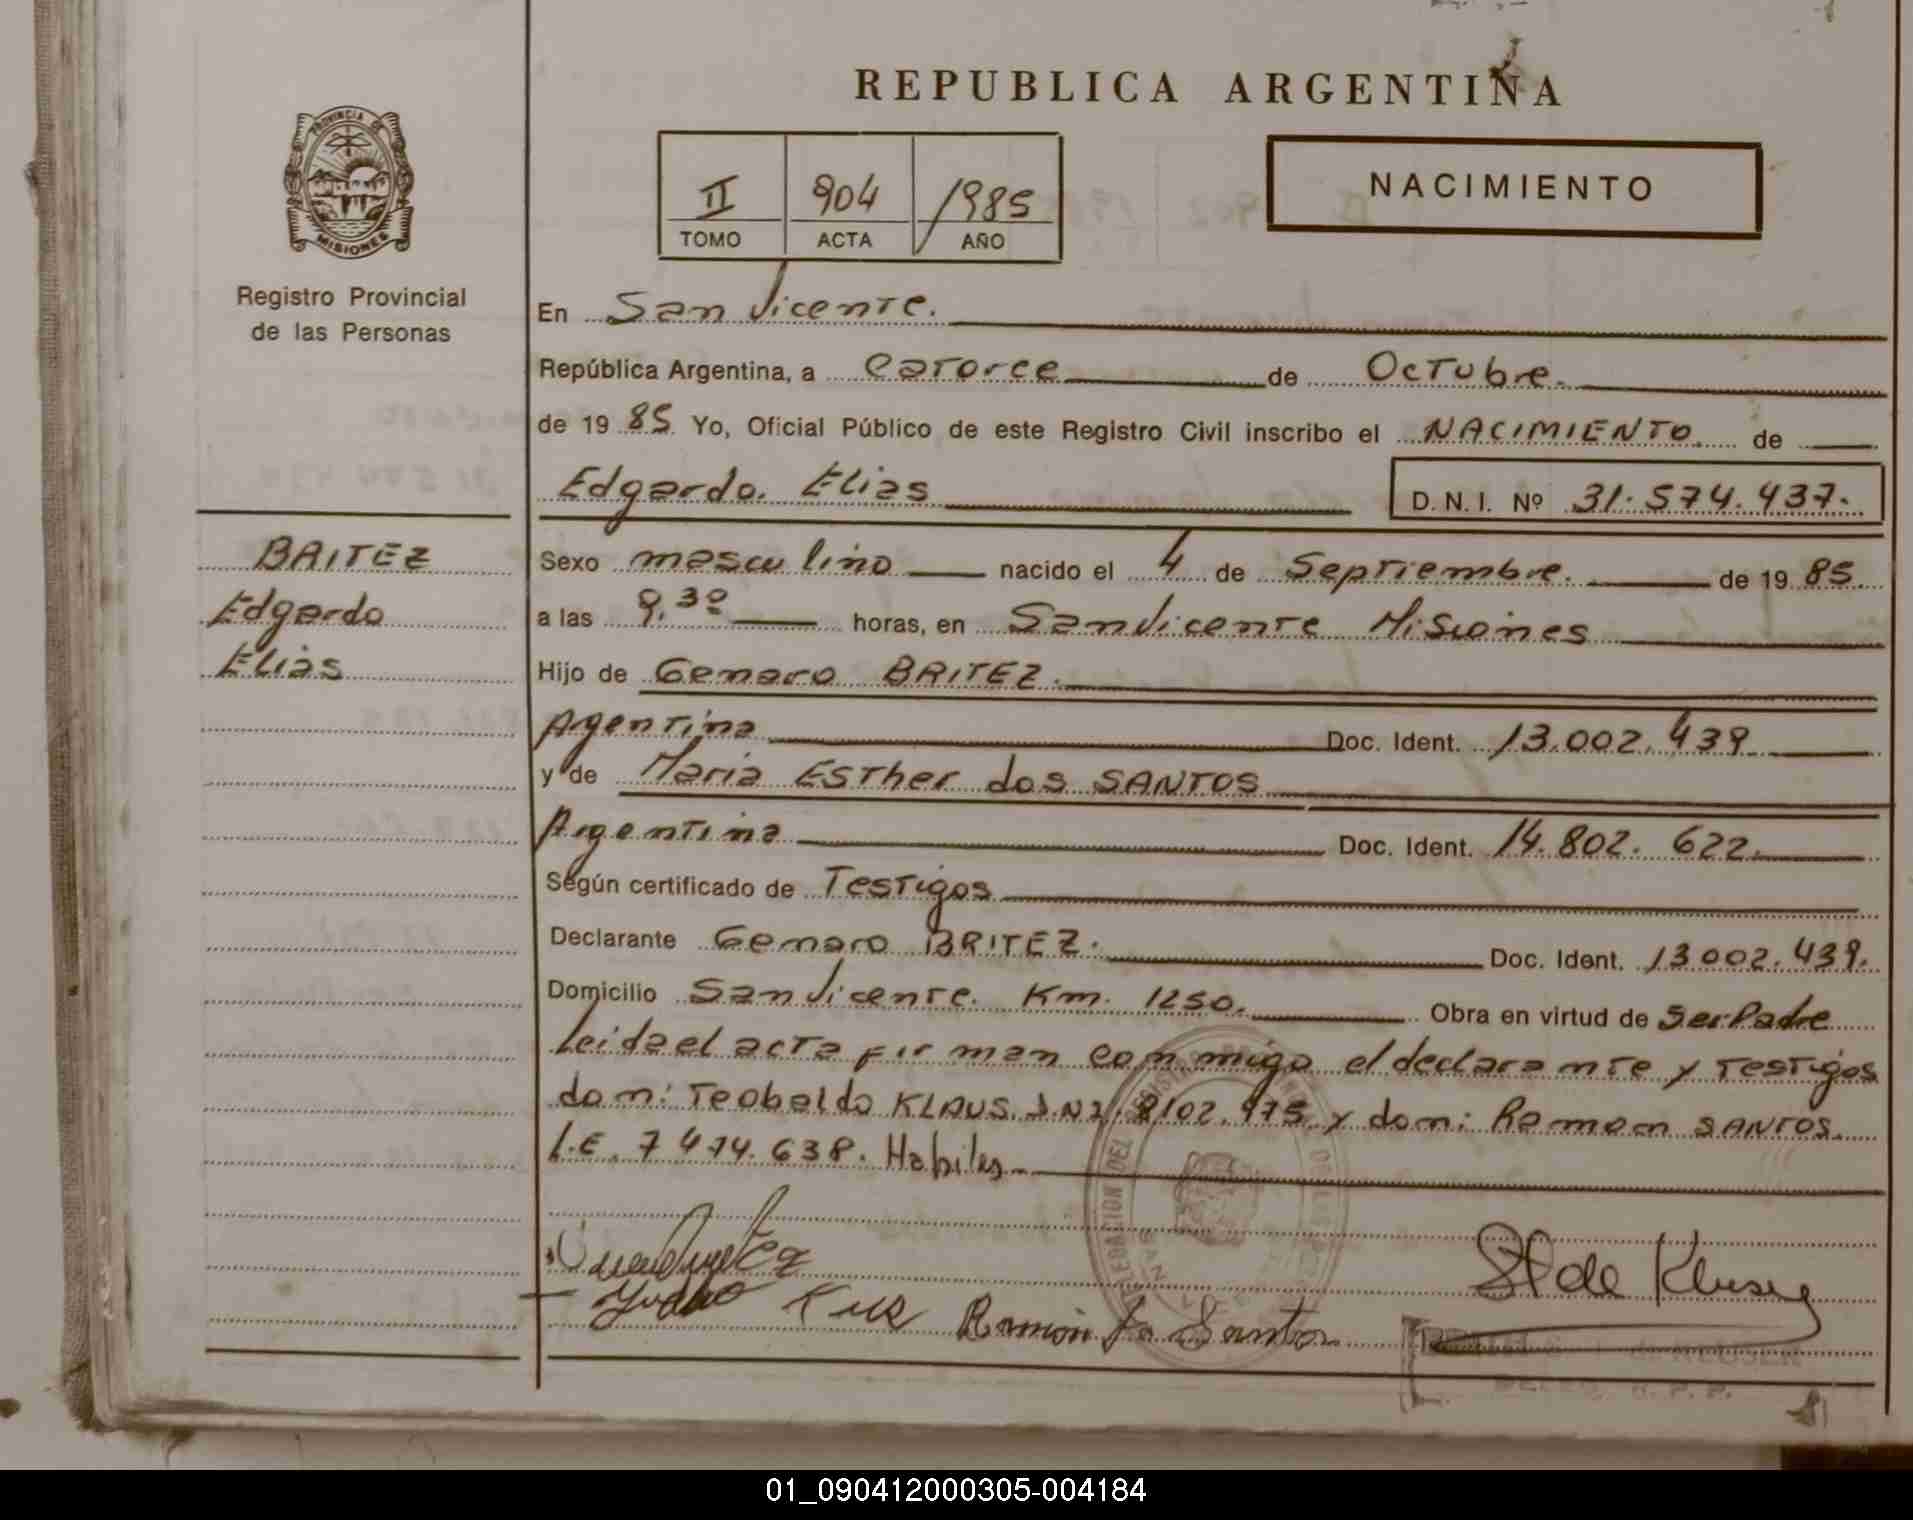 REPUBLICA ARGENTINA
PROVINCIA DE
MISIONES
Registro Provincial
de las Personas
II 904 1985
TOMO ACTA AÑO
NACIMIENTO
En San Vicente.
República Argentina, a Catorce de Octubre.
de 19 85 Yo, Oficial Público de este Registro Civil inscribo el NACIMIENTO de
Edgardo. Elias D. N. I. Nº 31.574.437.
BAITEZ
Edgardo
Elias
Sexo masculino nacido el 4 de Septiembre. de 19 85.
a las 9.30 horas, en San Vicente Misiones
Hijo de Genaro BRITEZ.
Agentina Doc. Ident. 13.002.439
y de Maria Esther dos SANTOS
Argentina Doc. Ident. 14.802.622.
Según certificado de Testigos
Declarante Genaro BRITEZ. Doc. Ident. 13 002.439.
Domicilio San Vicente. Km. 1250. Obra en virtud de Ser Padre
Leida el acta firman conmigo el declarante y Testigos
don: Teobaldo KLAUS. 8102.975 y don: Ramon SANTOS.
L.E. 7 474.638. Habiles
DELEGACION DEL
Ramón Do Santos
01_090412000305-004184